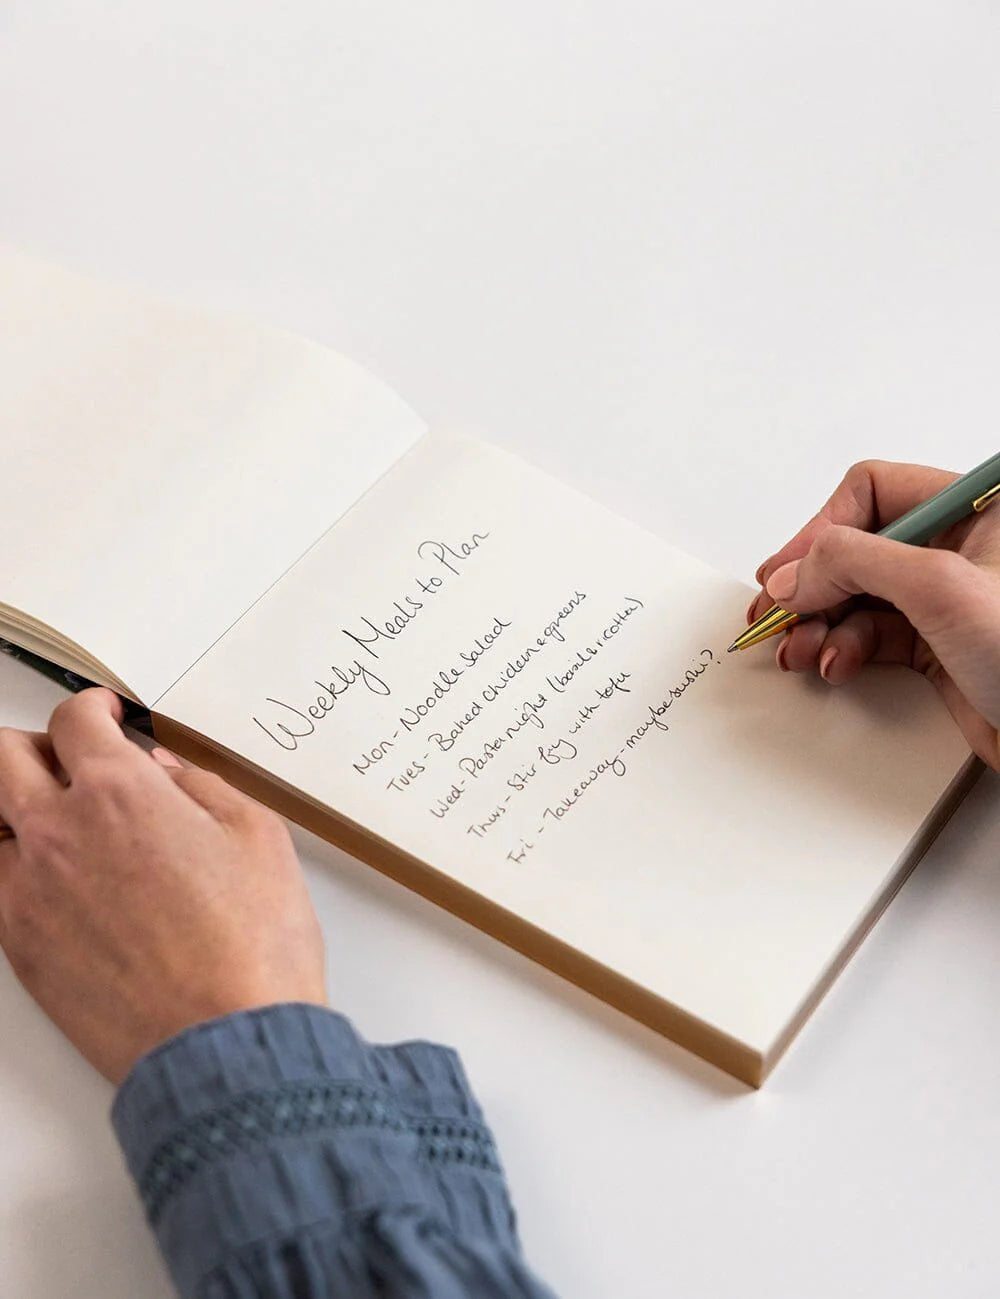 Weekly Meals to Plan
Mon - Noodle Salad
Tues - Baked chicken & greens
Wed - Pasta night (basil & ricotta)
Thurs - Stir fry with tofu
Fri - Takeaway - maybe sushi?